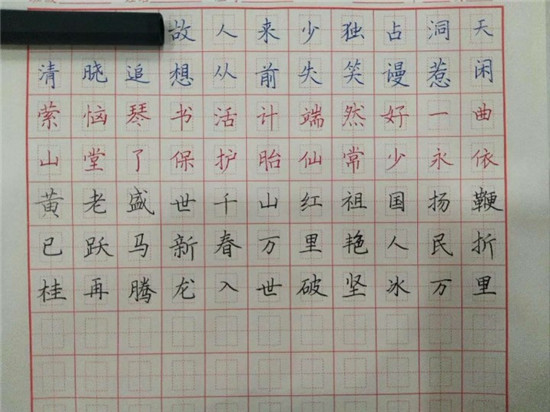 故人来少独占洞天
清晓追想从前失笑谩惹闲
萦恼琴书活计端然好一曲
山堂了保护胎仙常少永依
黄老盛世千山红祖国扬鞭
已跃马新春万里艳人民折
桂再腾龙入世破坚冰万里